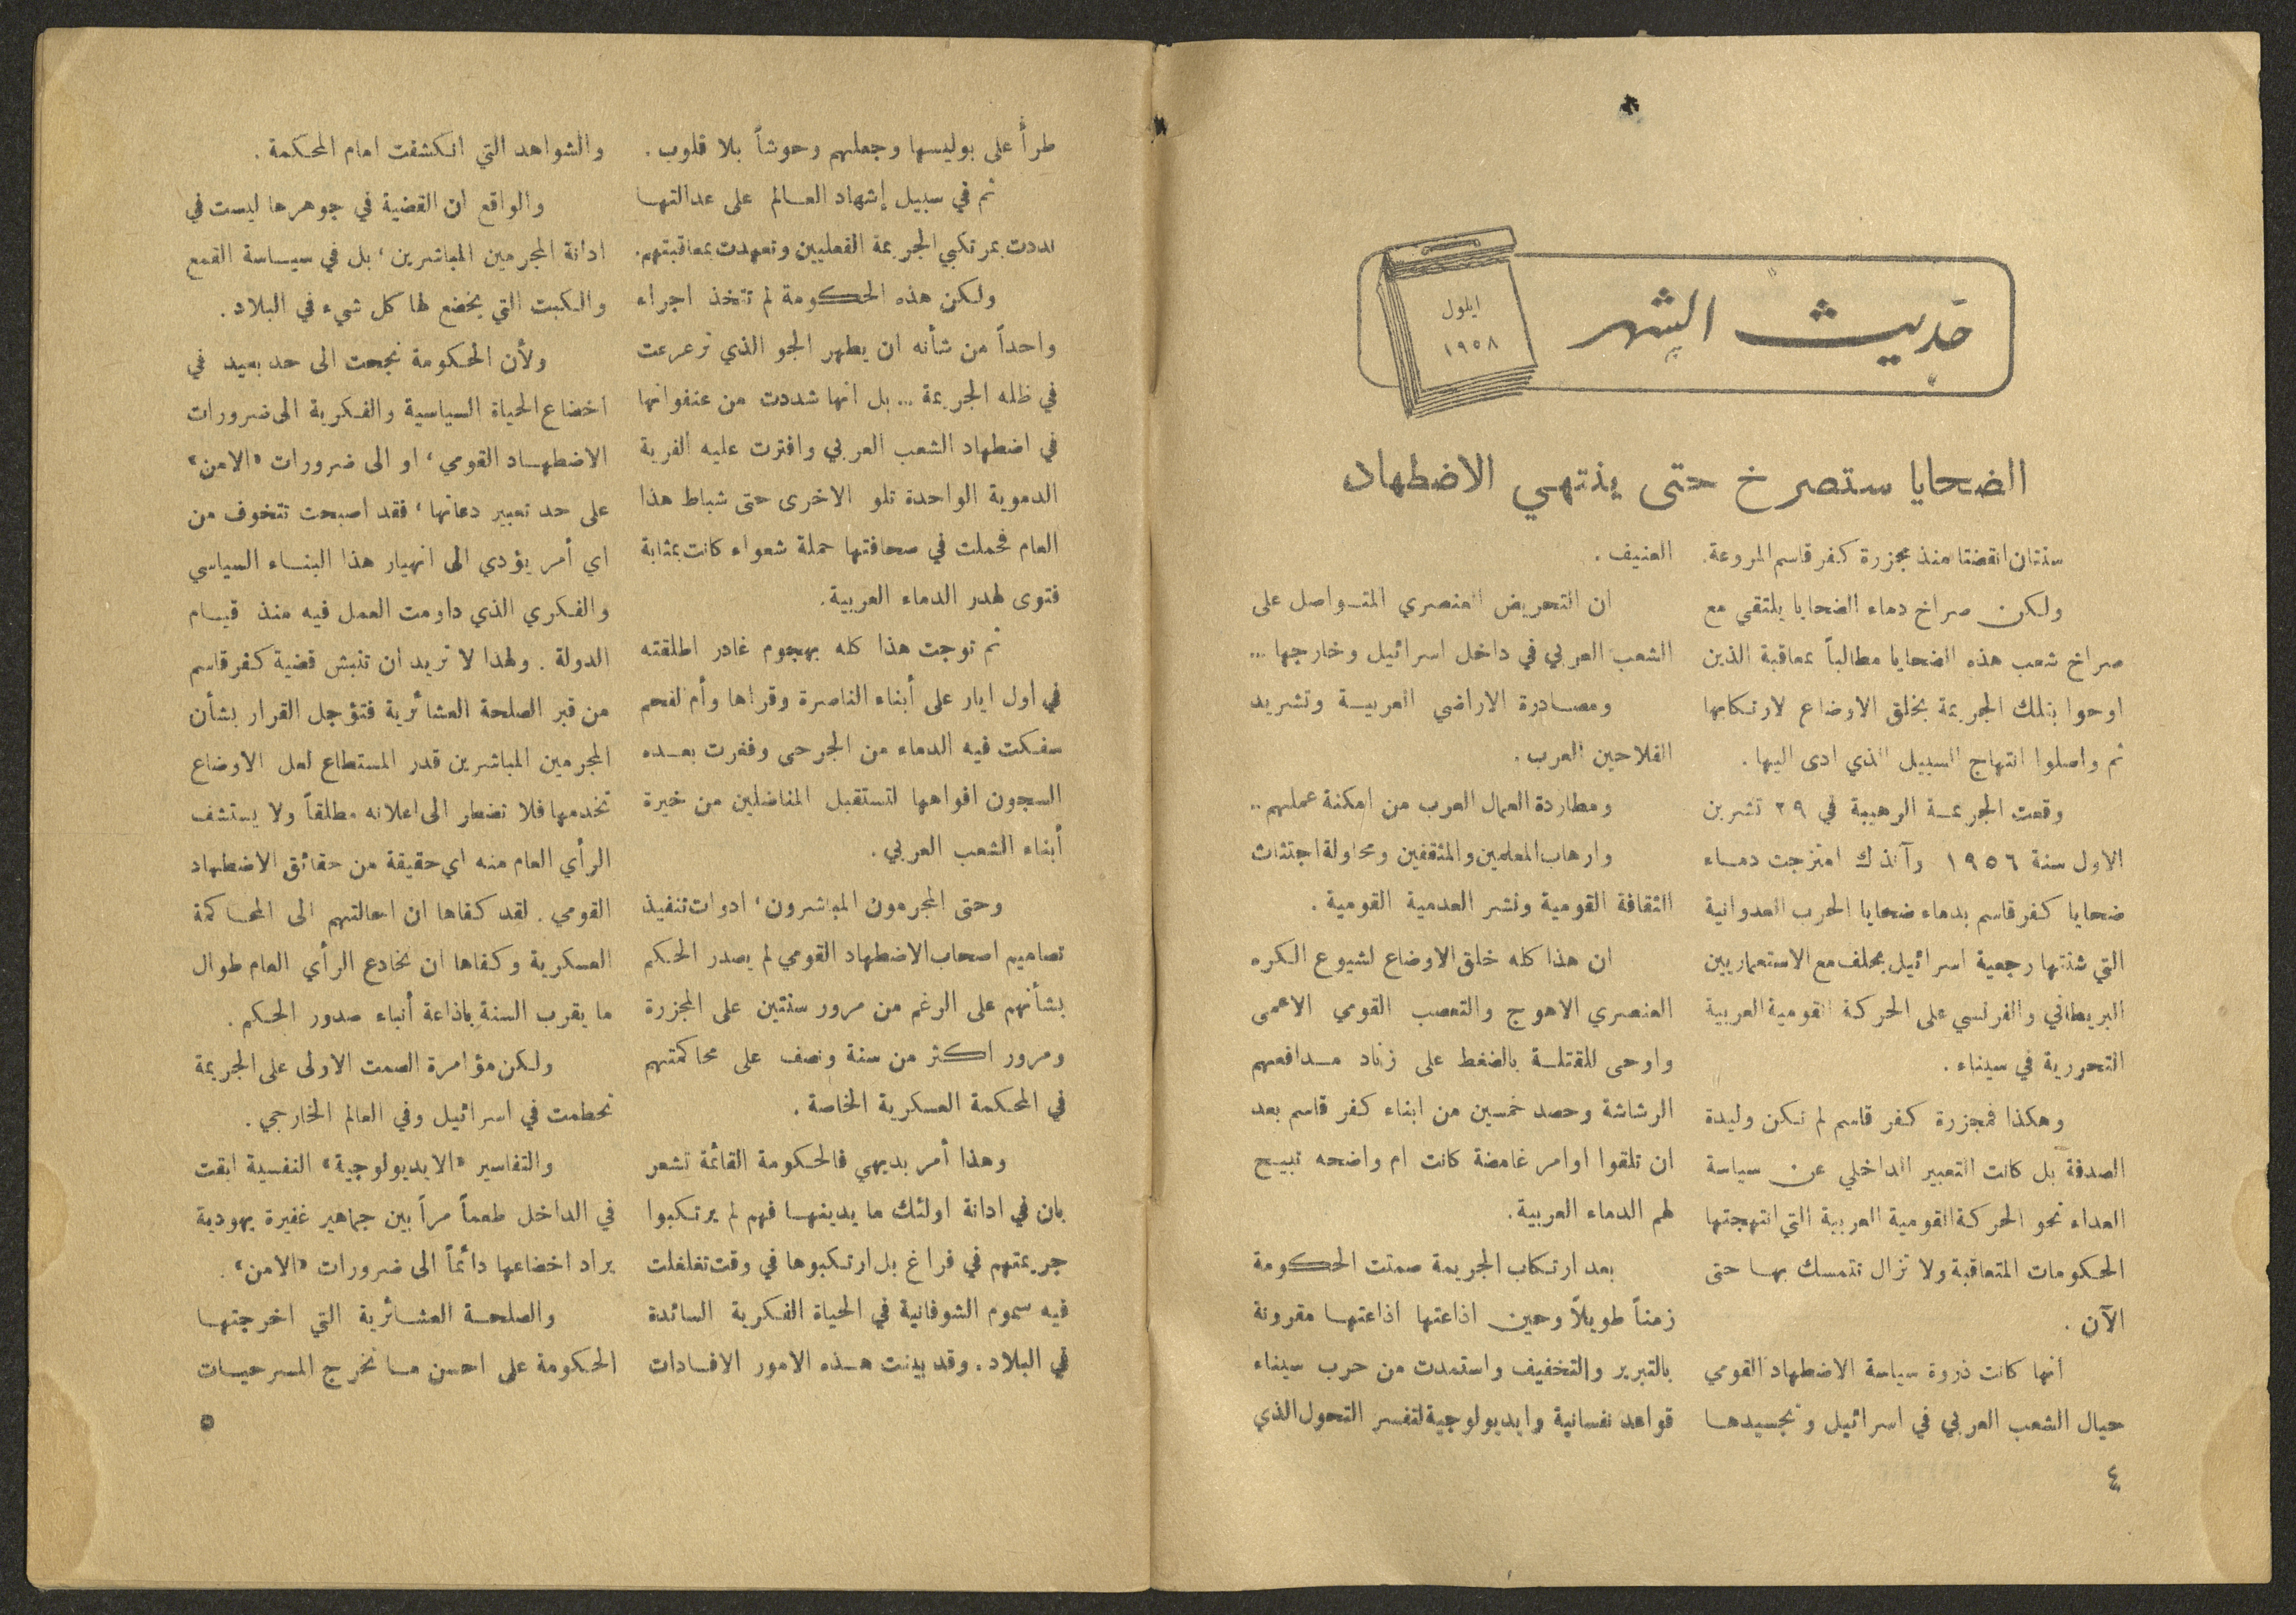 حديث الشهر
ايلول
١٩٥٨
الضحايا ستصرخ حتى ينتهي الاضطهاد
سنتان انقضتا منذ مجزرة كفر قاسم المروعة.
ولكن صراخ دماء الضحايا يلتقي مع
صراخ شعب هذه الضحايا مطالباً بمعاقبة الذين
اوحوا بتلك الجريمة بخلق الاوضاع لارتكابها
ثم واصلوا انتهاج السبيل الذي ادى اليها .
وقعت الجريمة الرهيبة في ٢٩ تشرين
الاول سنة ١٩٥٦ وآنذاك امتزجت دماء
ضحايا كفر قاسم بدماء ضحايا الحرب العدوانية
التي شنتها رجعية اسرائيل بحلف مع الاستعماريين
البريطاني والفرنسي على الحركة القومية العربية
التحررية في سيناء .
وهكذا فمجزرة كفر قاسم لم تكن وليدة
الصدفة بل كانت التعبير الداخلي عن سياسة
العداء نحو الحركة القومية العربية التي انتهجتها
الحكومات المتعاقبة ولا تزال تتمسك بها حتى
الآن .
انها كانت ذروة سياسة الاضطهاد القومي
حيال الشعب العربي في اسرائيل وتجسيدها
العنيف .
ان التحريض العنصري المتواصل على
الشعب العربي في داخل اسرائيل وخارجها ...
ومصادرة الاراضي العربية وتشريد
الفلاحين العرب .
ومطاردة العمال العرب من امكنة عملهم ..
وارهاب المعلمين والمثقفين ومحاولة اجتثاث
الثقافة القومية ونشر العدمية القومية .
ان هذا كله خلق الاوضاع لشيوع الكره
العنصري الاهوج والتعصب القومي الاعمى
واوحى للقتلة بالضغط على زناد مدافعهم
الرشاشة وحصد خمسين من ابناء كفر قاسم بعد
ان تلقوا اوامر غامضة كانت ام واضحه تبيح
لهم الدماء العربية .
بعد ارتكاب الجريمة صمتت الحكومة
زمناً طويلاً وحين اذاعتها اذاعتها مقرونة
بالتبرير والتخفيف واستمدت من حرب سيناء
قواعد نفسانية وايديولوجية لتفسر التحول الذي
٤
طرأ على بوليسها وجعلهم وحوشاً بلا قلوب .
ثم في سبيل إشهاد العالم على عدالتها
نددت بمرتكبي الجريمة الفعليين وتعهدت بمعاقبتهم.
ولكن هذه الحكومة لم تتخذ اجراء
واحداً من شأنه ان يطهر الجو الذي ترعرعت
في ظله الجريمة ... بل انها شددت من عنفوانها
في اضطهاد الشعب العربي وافترت عليه الفرية
الدموية الواحدة تلو الاخرى حتى شباط هذا
العام فحملت في صحافتها حملة شعواء كانت بمثابة
فتوى لهدر الدماء العربية .
ثم توجت هذا كله بهجوم غادر اطلقته
في اول ايار على أبناء الناصرة وقراها وأم الفحم
سفكت فيه الدماء من الجرحى وفغرت بعده
السجون افواهها لتستقبل المناضلين من خيرة
أبناء الشعب العربي .
وحتى المجرمون المباشرون ، ادوات تنفيذ
تصاميم اصحاب الاضطهاد القومي لم يصدر الحكم
بشأنهم على الرغم من مرور سنتين على المجزرة
ومرور اكثر من سنة ونصف على محاكمتهم
في المحكمة العسكرية الخاصة .
وهذا أمر بديهي فالحكومة القائمة تشعر
بان في ادانة اولئك ما يدينها فهم لم يرتكبوا
جريمتهم في فراغ بل ارتكبوها في وقت تغلغلت
فيه سموم الشوفانية في الحياة الفكرية السائدة
في البلاد . وقد بينت هذه الامور الافادات
والشواهد التي انكشفت امام المحكمة .
والواقع ان القضية في جوهرها ليست في
ادانة المجرمين المباشرين ، بل في سياسة القمع
والكبت التي يخضع لها كل شيء في البلاد .
ولأن الحكومة نجحت الى حد بعيد في
اخضاع الحياة السياسية والفكرية الى ضرورات
الاضطهاد القومي ، او الى ضرورات «الامن»
على حد تعبير دعاتها ، فقد اصبحت تتخوف من
اي أمر يؤدي الى انهيار هذا البناء السياسي
والفكري الذي داومت العمل فيه منذ قيام
الدولة . ولهذا لا تريد ان تنبش قضية كفر قاسم
من قبر الصلحة العشائرية فتؤجل القرار بشأن
المجرمين المباشرين قدر المستطاع لعل الاوضاع
تخدمها فلا تضطر الى اعلانه مطلقاً ولا يستشف
الرأي العام منه اي حقيقة من حقائق الاضطهاد
القومي . لقد كفاها ان احالتهم الى المحاكمة
العسكرية وكفاها ان تخادع الرأي العام طوال
ما يقرب السنة باذاعة أنباء صدور الحكم .
ولكن مؤامرة الصمت الاولى على الجريمة
تحطمت في اسرائيل وفي العالم الخارجي .
والتفاسير «الايديولوجية» النفسية ابقت
في الداخل طعماً مراً بين جماهير غفيرة يهودية
يراد اخضاعها دائماً الى ضرورات «الامن» .
والصلحة العشائرية التي اخرجتها
الحكومة على احسن ما تخرج المسرحيات
٥